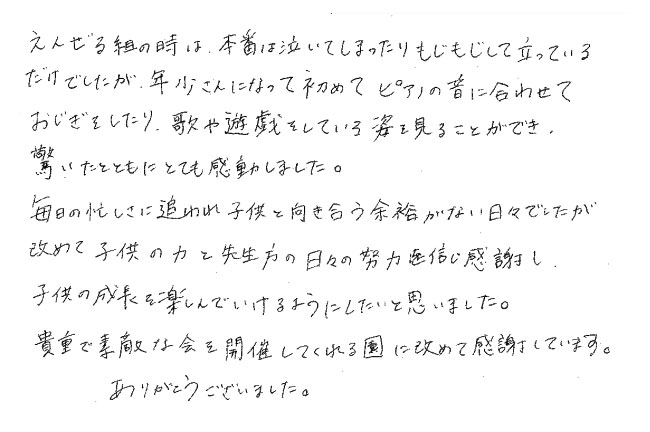 えんぜる組の時は、本番は泣いてしまったりもじもじして立っている
だけでしたが、年少さんになって初めてピアノの音に合わせて
おじぎをしたり、歌や遊戯をしている姿を見ることができ、
驚いたとともにとても感動しました。
毎日の忙しさに追われ子供と向き合う余裕がない日々でしたが
改めて子供の力と先生方の日々の努力を信じ感謝し、
子供の成長を楽しんでいけるようにしたいと思いました。
貴重で素敵な会を開催してくれる園に改めて感謝しています。
ありがとうございました。